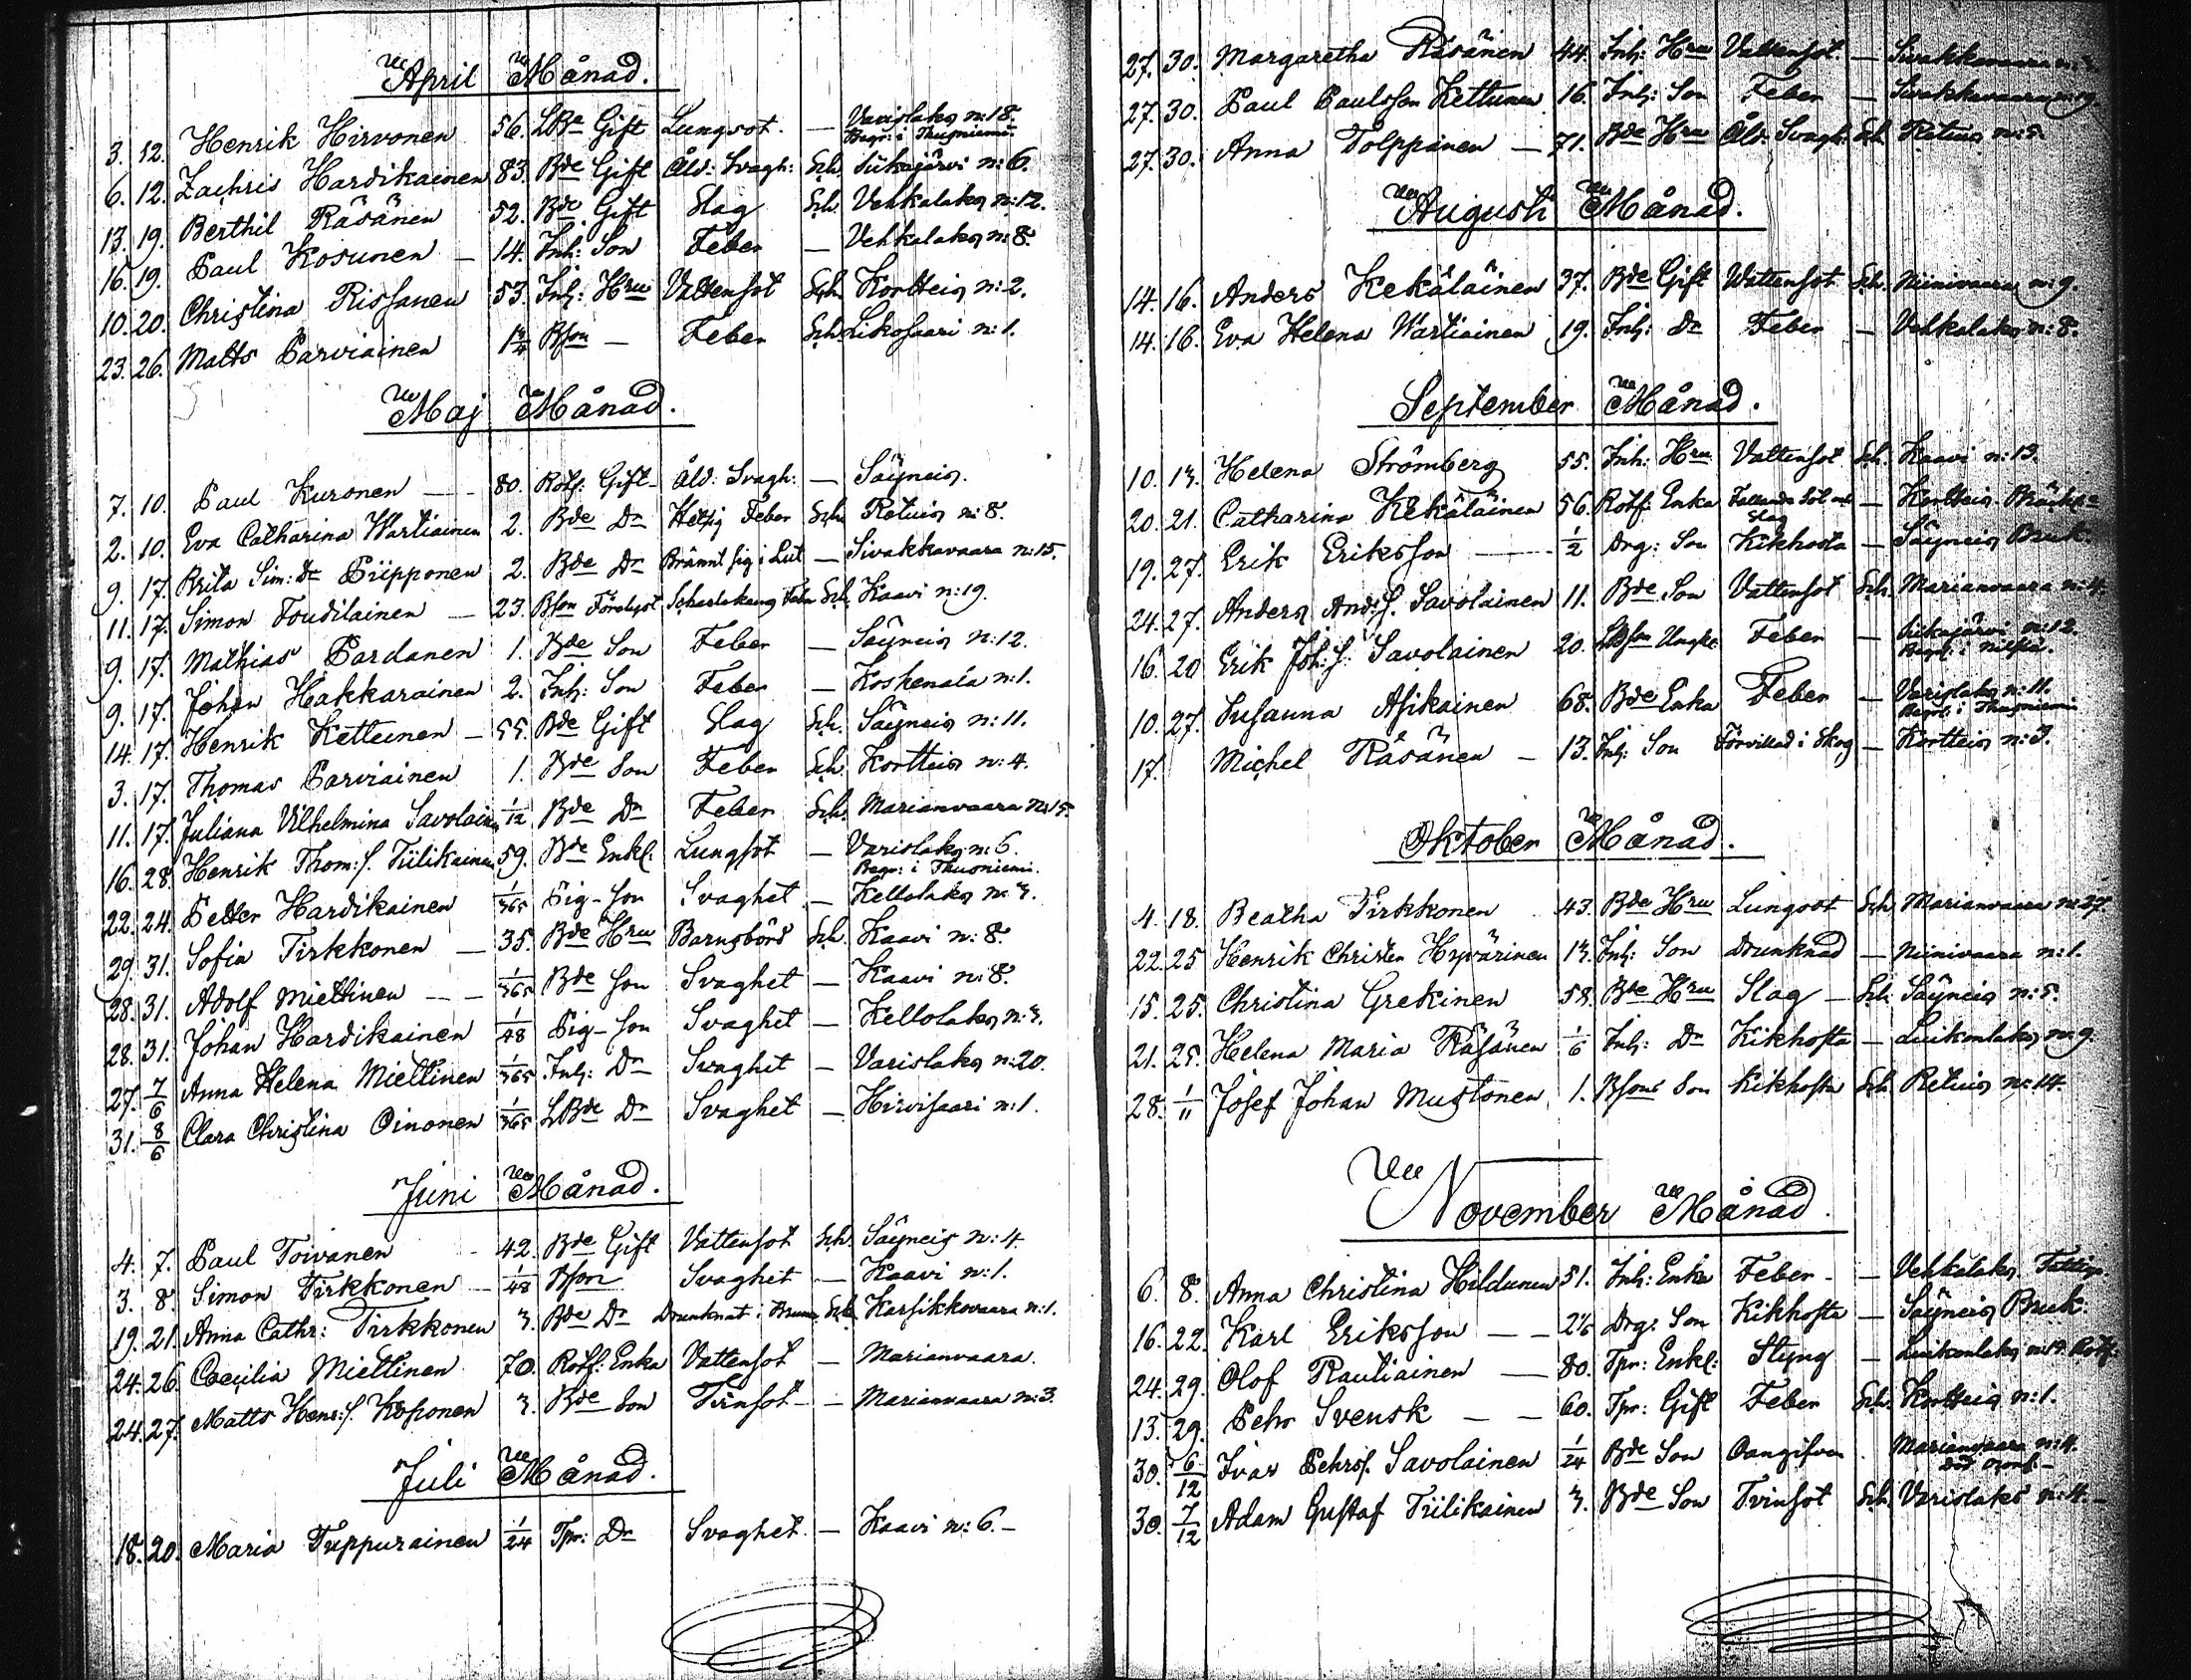 April Månad.
3. 12. Henrik Hirvonen 56. LBde Gift Lungsot. — Varislaks n:18.
Begr: i Thusniemi.
6. 12. Zachris Hardikainen 83. Bde Gift Åld: Svagh: Sch. Siikajärvi n:6.
13. 19. Berthil Räsänen 52. Bde Gift Slag Sch. Vehkalaks n:12.
16. 19. Paul Kosunen — 14. Inh: Son Feber — Vehkalaks n:8.
10. 20. Christina Rissanen 53. Inh: Hru Vattensot Sch. Kortteis n:2.
23. 26. Matts Parviainen 1 3/4 Bson — Feber Sch. Likosaari n:1.
Maj Månad.
7. 10. Paul Kuronen — 80. Rotf: Gift — Åld: Svagh: — Säyneis.
2. 10. Eva Catharina Wartiainen 2. Bde Dr Hetsig Feber Sch. Retuis n:8.
9. 17. Brita Sim: Dr Piipponen 2. Bde Dr Brännt sig i Lut — Sivakkavaara n:15.
11. 17. Simon Toudilainen — 23. Bson Scharlakans Feber Sch. Kaavi n:19.
9. 17. Mathias Pardanen 1. Bde Son Feber — Säyneis n:12.
9. 17. Johan Hakkarainen 2. Inh: Son Feber — Koskenala n:1.
14. 17. Henrik Kettunen — 55. Bde Gift Slag Sch. Säyneis n:11.
3. 17. Thomas Parviainen 1. Bde Son Feber Sch. Kortteis n:4.
11. 17. Juliana Vilhelmina Savolain 1/12 Bde Dr Feber Sch. Marianvaara n:15.
16. 28. Henrik Thom:s. Tiilikainen 59. Bde Enkl: Lungsot — Varislaks n:6.
Begr: i Thusniemi.
22. 24. Petter Hardikainen 1/365 Pig-son Svaghet — Kellolaks n:3.
29. 31. Sofia Tirkkonen — 35. Bde Hru Barnsbörd Sch. Kaavi n:8.
28. 31. Adolf Miettinen — — 1/365 Bde Son Svaghet — Kaavi n:8.
28. 31. Johan Hardikainen 1/48 Pig-son Svaghet — Kellolaks n:3.
27. 7/6 Anna Helena Miettinen 1/365 Inh: Dr Svaghet — Varislaks n:20.
31. 8/6 Clara Christina Oinonen 1/365 LBde Dr Svaghet — Hirvisaari n:1.
Juni Månad.
4. 7. Paul Toivanen 42. Bde Gift Vattensot Sch. Säyneis n:4.
3. 8. Simon Tirkkonen — 1/48 Bson Svaghet — Kaavi n:1.
19. 21. Anna Cathr: Tirkkonen 3. Bde Dr Drunknat i Brunn Sch. Karsikkovaara n:1.
24. 26. Caecilia Miettinen 70. Rotf: Enka Vattensot — Marianvaara.
24. 27. Matts Henr:s. Koponen 3. Bde Son — — Marianvaara n:3.
Juli Månad.
18. 20. Maria Tuppurainen 1/24 Tpr: Dr Svaghet. — Kaavi n:6. —
27. 30. Margaretha Räsänen 44. Inh: Hru Vattensot. — Sivakkavaara
27. 30. Paul Paulsson Kettunen 16. Inh: Son Feber — Sivakkavaara n:9.
27. 30. Anna Tolppanen — 71. Bde Hru Åld: Svagh: Sch. Retuis n:5.
Augusti Månad.
14. 16. Anders Kekäläinen 37. Bde Gift Wattensot Sch. Niinivaara n:9.
14. 16. Eva Helena Wartiainen 19. Inh: Dr Feber — Vehkalaks n:8.
September Månad.
10. 13. Helena Strömberg 55. Inh: Hru Vattensot Sch. Kaavi n:13.
20. 21. Catharina Kekäläinen 56. Rotf: Enka Fallande Sot — Kortteis
Slag
19. 27. Erik Eriksson — 1/2 Drg: Son Kikhosta — Säyneis Bruk.
24. 27. Anders And:s. Savolainen 11. Bde Son Vattensot Sch. Marianvaara n:4.
16. 20 Erik Joh:s. Savolainen 20. LBson Ungk: Feber — Siikajärvi n:12.
Begr: i Nilsiä.
10. 27. Susanna Asikainen 68. Bde Enka Feber — Varislaks n:11.
Begr: i Thusniemi
17. Michel Räsänen — 13. Inh: Son Förvillad i Skog — Kortteis n:3.
Oktober Månad.
4. 18. Beatha Tirkkonen 43. Bde Hru Lungsot Sch. Marianvaara n:27.
22. 25 Henrik Christer Hyvärinen 13. Inh: Son Drunknad — Niinivaara n:1.
15. 25. Christina Grekinen 58. Bde Hru Slag — Sch. Säyneis n:5.
21. 25. Helena Maria Räsänen 1/6 Inh: Dr Kikhosta — Luikonlaks n:9.
28. 1/11 Josef Johan Mustonen 1. Bsons Son Kikhosta Sch. Retuis n:14.
November Månad.
6. 8. Anna Christina Hildunen 51. Inh: Enka Feber — — Vehkalaks Fattig.
16. 22. Karl Eriksson — — 2 1/6 Drg: Son Kikhosta — Säyneis Bruk.
24. 29. Olof Rautiainen — 80. Tpr: Enkl: Styng — Luikonlaks n:19. Rotf:
13. 29. Pehr Svensk — — 60. Tpr: Gift Feber Sch. Kortteis n:1.
30. 6/12 Ivar Pehrs. Savolainen 1/24 Bde Son Oangifven Marianvaara n:4.
30. 7/12 Adam Gustaf Tiilikainen 3. Bde Son Tvinsot Sch. Varislaks n:4. —